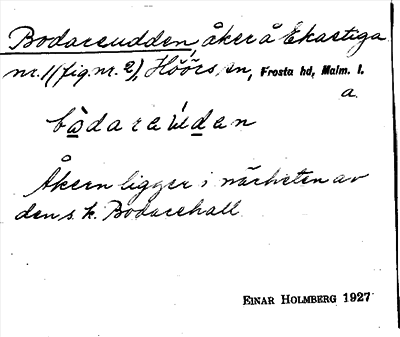 Bodareudden, åker å Ekastiga
nr. 1 (fig. nr. 2), Höörs sn, Frosta hd, Malm. l.
a.
bòdaraúdan
Åkern ligger i närheten av
den s. k. Bodarehall
EINAR HOLMBERG 1927